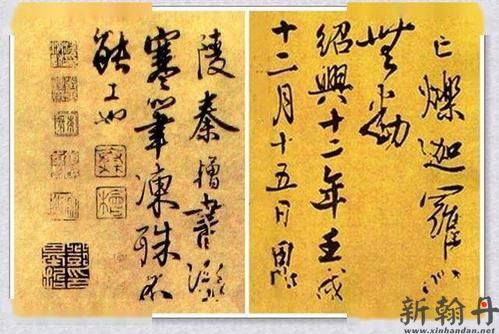 亡爍迦羅心
無動
紹興十二年壬戌
十二月十五日
陵秦檜書
寒筆凍殊不
能工也
新翰丹
www.xinhandan.net